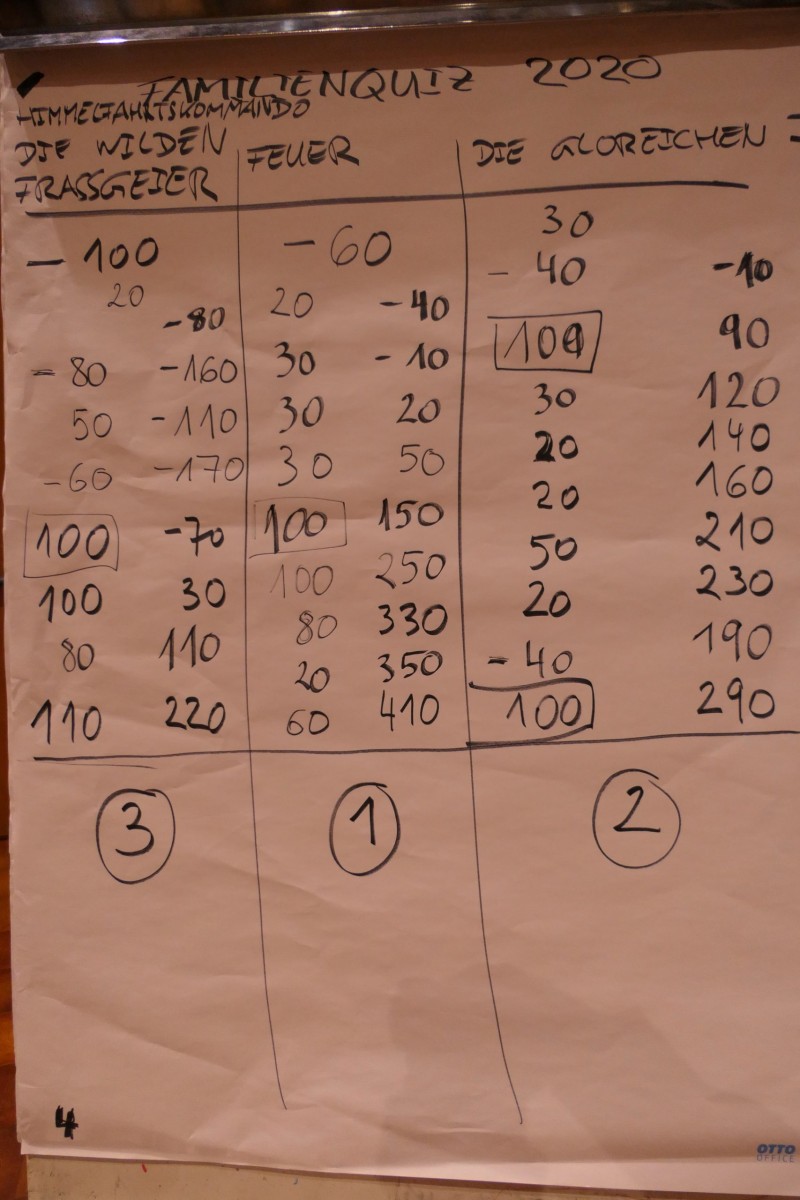 FAMILIENQUIZ 2020
HIMMELFAHRTSKOMMANDO
DIE WILDEN
FRASSGEIER
- 100
20
-80
- 80 -160
50 -110
-60 -170
100 -70
100 30
80 110
110 220
3
FEUER
- 60
20 -40
30 -10
30 20
30 50
100 150
100 250
80 330
20 350
60 410
1
DIE GLOREICHEN
30
- 40 -10
100 90
30 120
20 140
20 160
50 210
20 230
- 40 190
100 290
2
4
OTTO
OFFICE